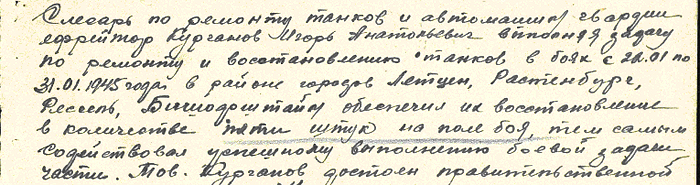 Слесарь по ремонту танков и автомашин гвардии
ефрейтор Курганов Игорь Анатольевич выполняя задачу
по ремонту и востановлению танков в боях с 21.01 по
31.01.1945 года в районе городов Летцен, Растенбург,
Рессель, Бишофштайн обеспечил их восстановление
в количестве пяти штук на поле боя тем самым
содействовал успешному выполнению боевой задачи
части. Тов. Курганов достоин правительственной